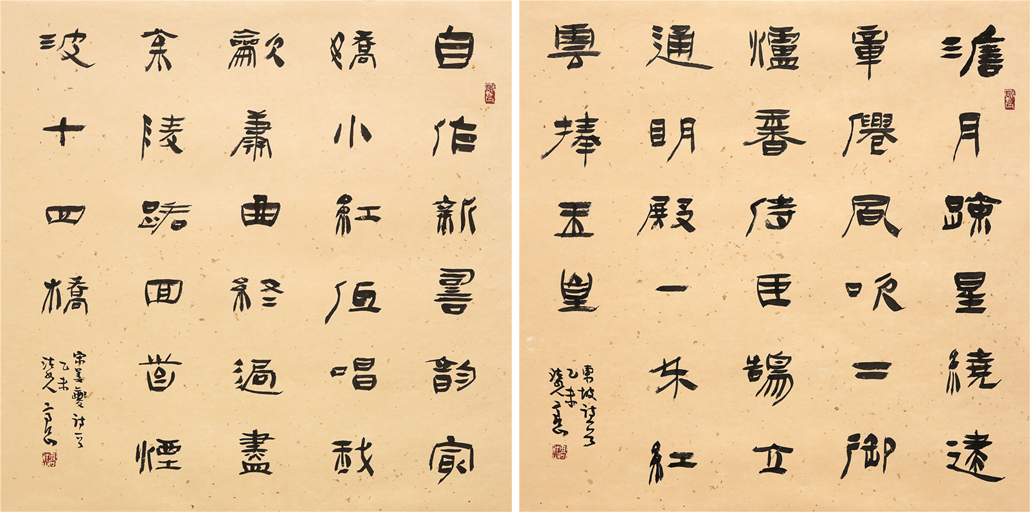 澹月疎星繞建
章僊風吹下御
爐香侍臣鵠立
通明殿一朵紅
雲捧玉皇
東坡詩一首
乙未
自作新詞韻最
嬌小紅低唱我
龡簫曲終過盡
松陵路回首煙
波十四橋
宋姜夔詩一首
乙未